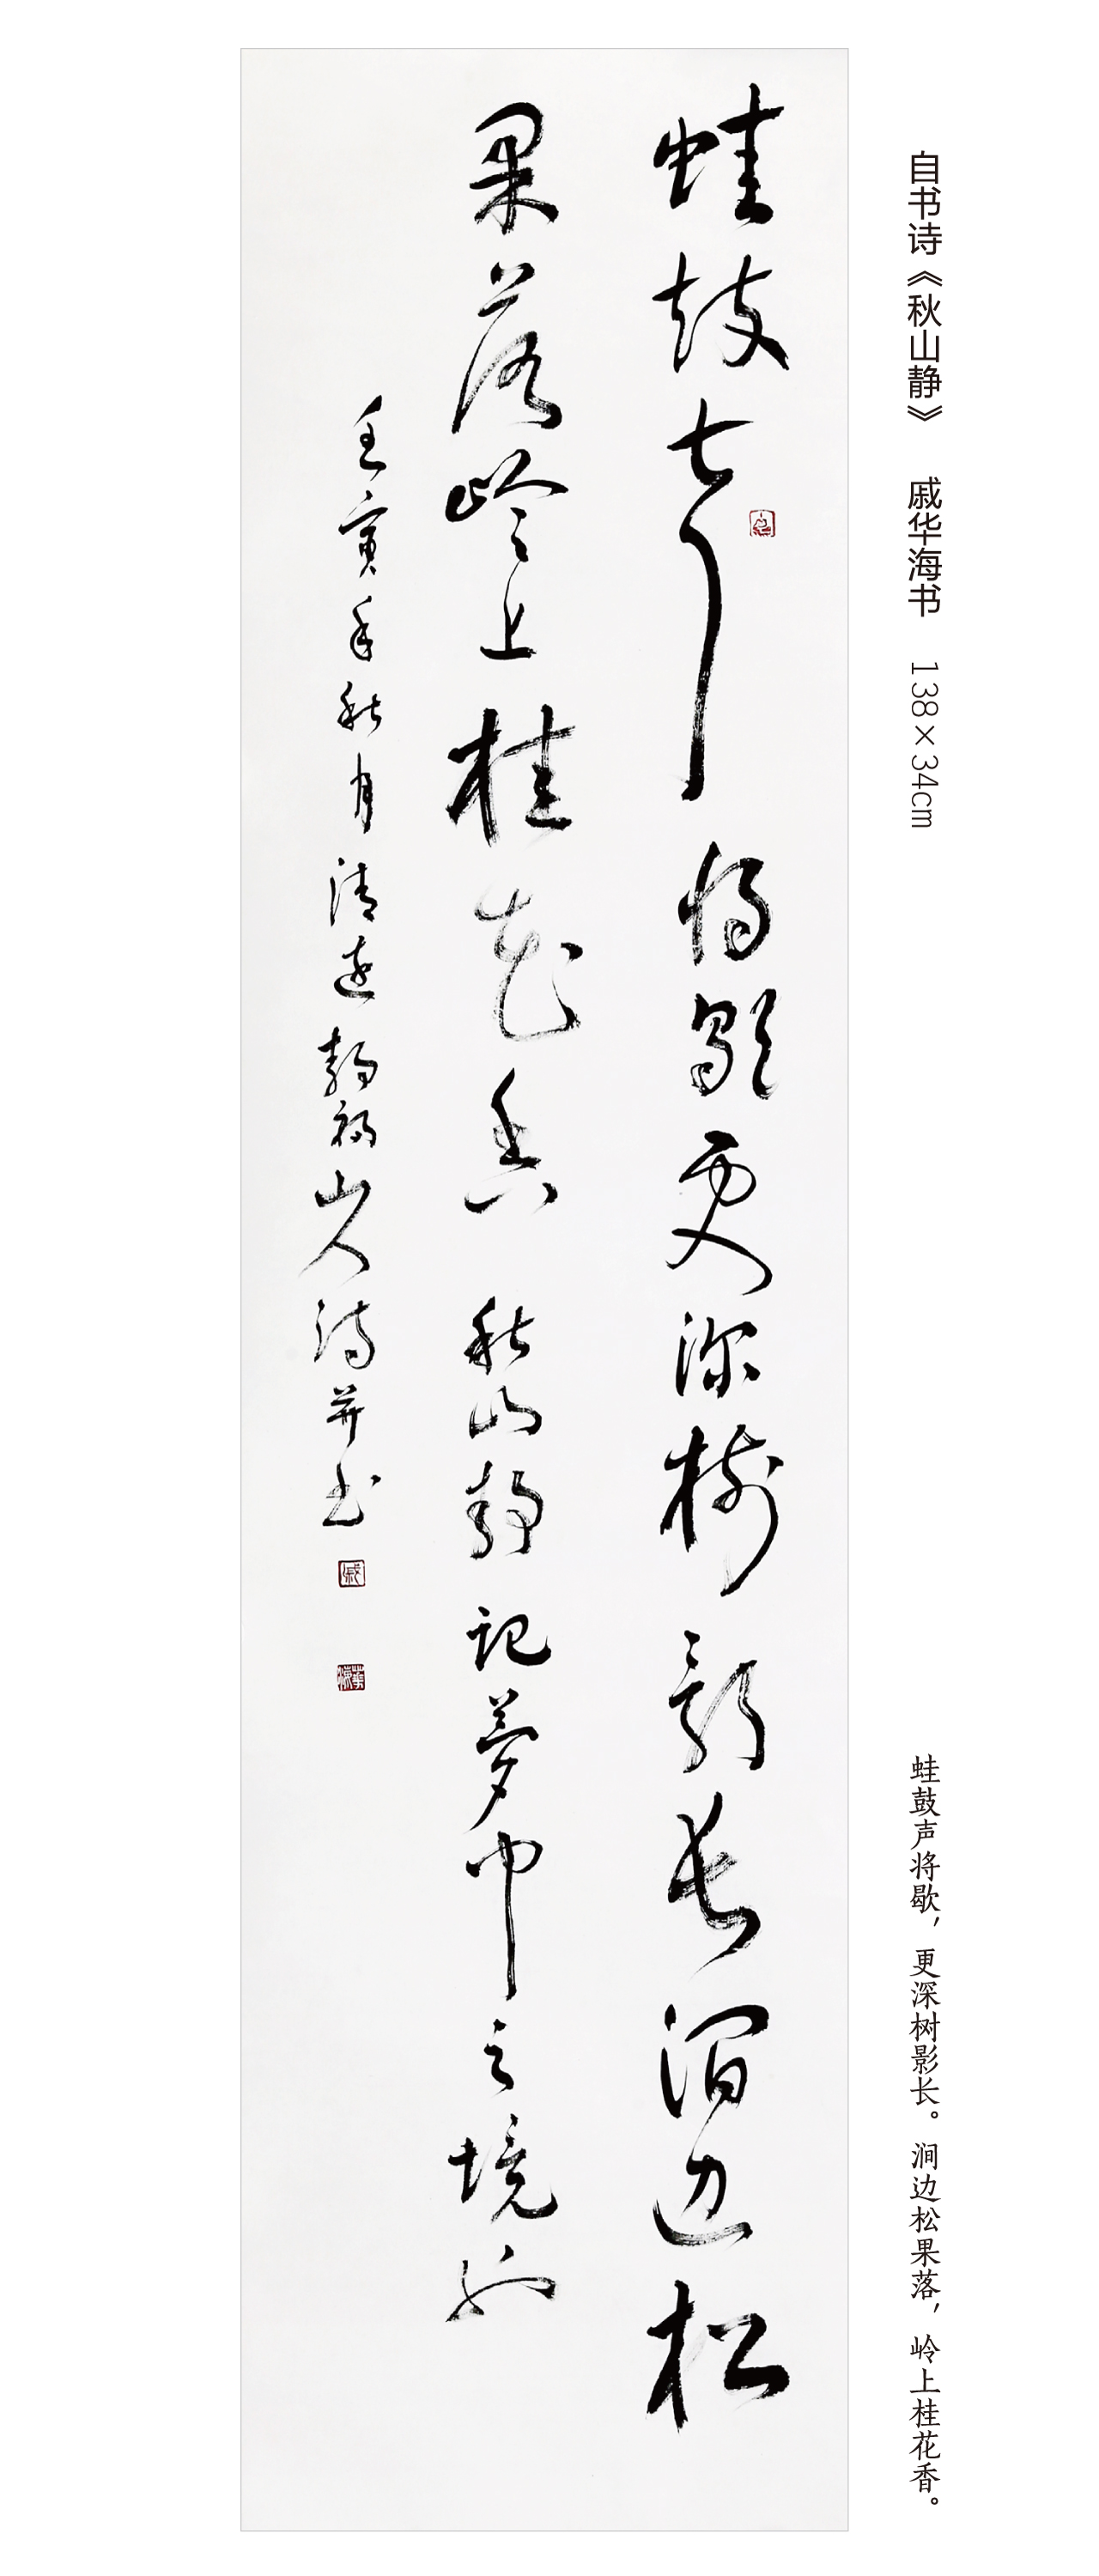 自书诗《秋山静》 戚华海书 138×34cm
蛙鼓声将歇，更深树影长。涧边松果落，岭上桂花香。
蛙鼓声将歇更深树影长涧边松
果落岭上桂花香 秋山静 记梦中之境也
壬寅年秋月清远静福山人诗并书
戚
華海